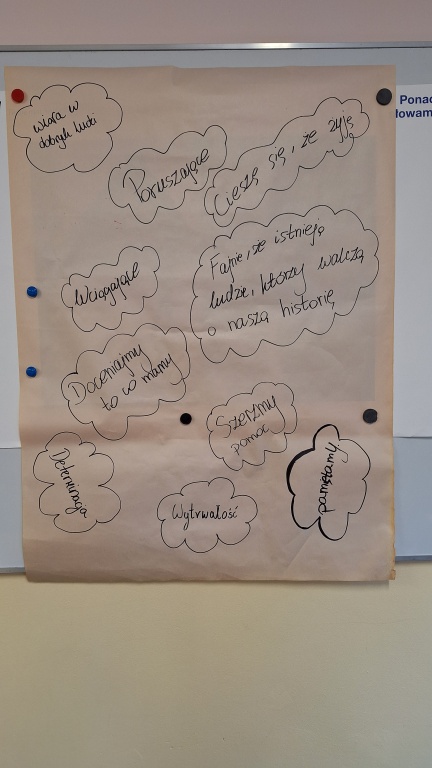 wiara w
dobrych ludzi
Poruszające
Cieszę się, że żyję
Wciągające
Fajnie, że istnieją
ludzie, którzy walczą
o naszą historię
Doceniajmy
to co mamy
Szerzmy
pomoc
Determinacja
Wytrwałość
pamiętamy
Ponad